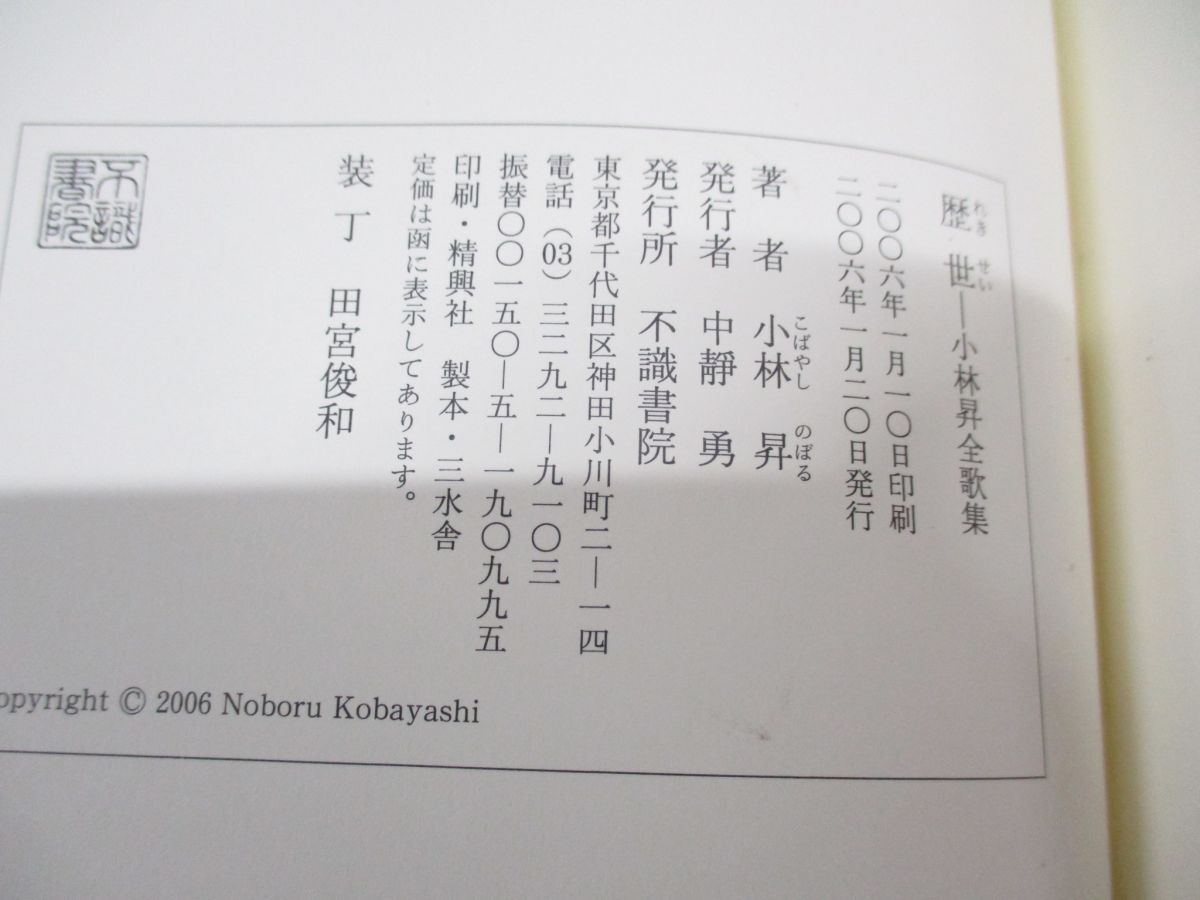 歴世―小林昇全歌集
れきせい
二〇〇六年一月一〇日印刷
二〇〇六年一月二〇日発行
著者 小林 昇
こばやし のぼる
発行者 中靜 勇
発行所 不識書院
東京都千代田区神田小川町二―一四
電話（03）三二九二―九一〇三
振替〇〇一五〇―五―一九〇九九五
印刷・精興社 製本・三水舎
定価は函に表示してあります。
装丁 田宮俊和
不識書院
opyright © 2006 Noboru Kobayashi